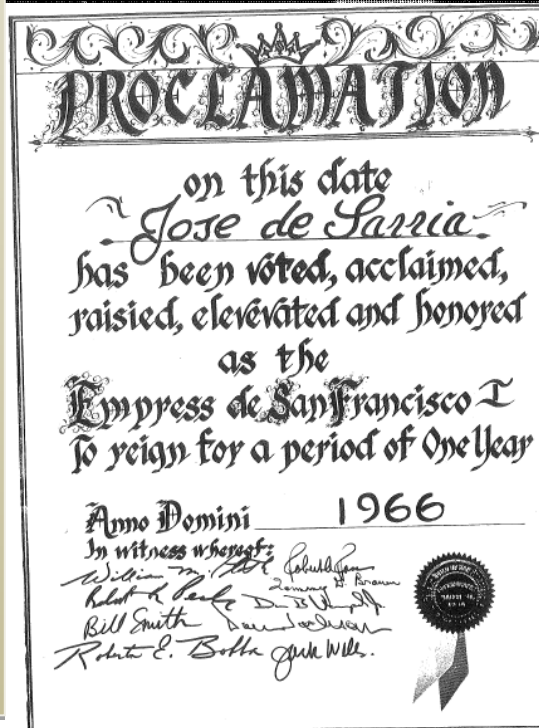 PROCLAMATION
on this date
Jose de Sarria
has been voted, acclaimed,
raisied, elevévated and honored
as the
Empress de San Francisco I
To reign for a period of One Year
Anno Domini 1966
In witness whereof:
William M.
Robert
Bill Smith
Roberta E. Bobba Jack Wills.